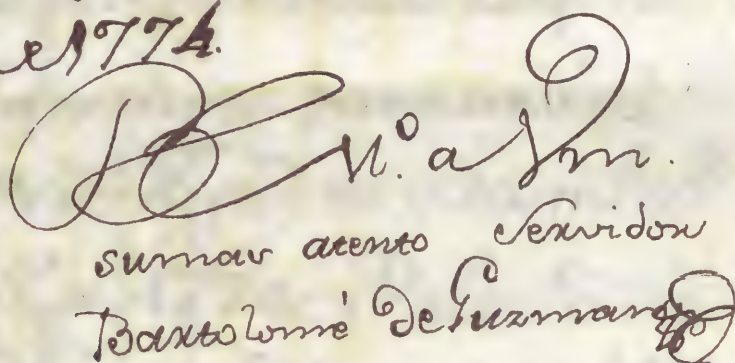 e 1774.
B L M.º a Vm.
su mas atento Servidor
Bartolomé De Guzman